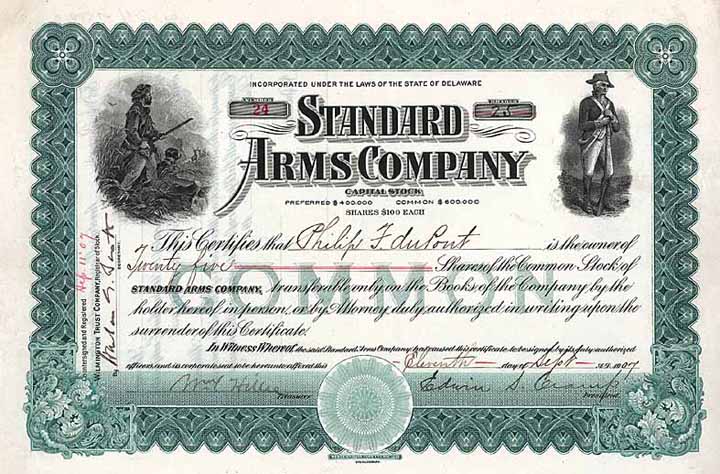 INCORPORATED UNDER THE LAWS OF THE STATE OF DELAWARE
NUMBER 24
SHARES 25
STANDARD
ARMS COMPANY
CAPITAL STOCK
PREFERRED $400.000 COMMON $600.000
SHARES $100 EACH
This Certifies that Philip F duPont is the owner of
Twenty five Shares of the Common Stock of
STANDARD ARMS COMPANY, transferable only on the Books of the Company by the
holder hereof in person, or by Attorney duly authorized in writing upon the
surrender of this Certificate.
COMMON
In Witness Whereof, the said Standard Arms Company has caused this certificate to be signed by its duly authorized
officers, and its corporate seal to be hereunto affixed this Eleventh day of Sept A.D. 1907
Treasurer
Edwin S. Cramp
President
Countersigned and Registered Sep. 11' 07
WILMINGTON TRUST COMPANY, Registrar of Stock
By
SECRETARY